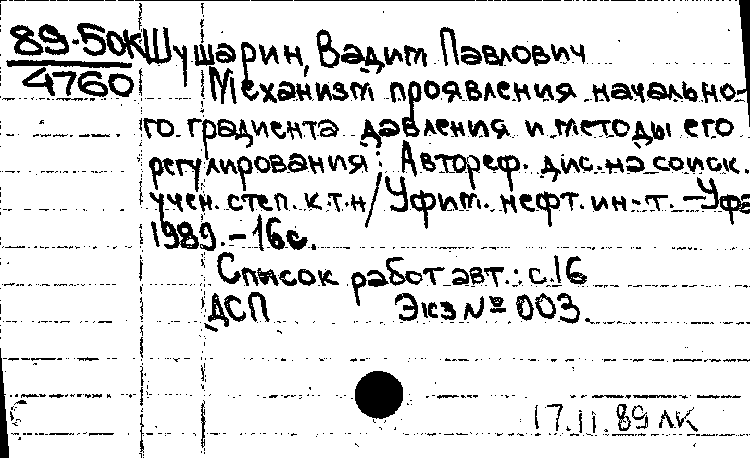 89-50К Шушарин, Вадим Павлович
4760 Механизм проявления начально-
го градиента давления и методы его
регулирования: Автореф. дис. на соиск.
учен. степ. к.т.н / Уфим. нефт. ин-т. – Уфа
1989. – 16с.
Список работ авт.: с.16
ДСП Экз № 003.
17.11.89 ЛК